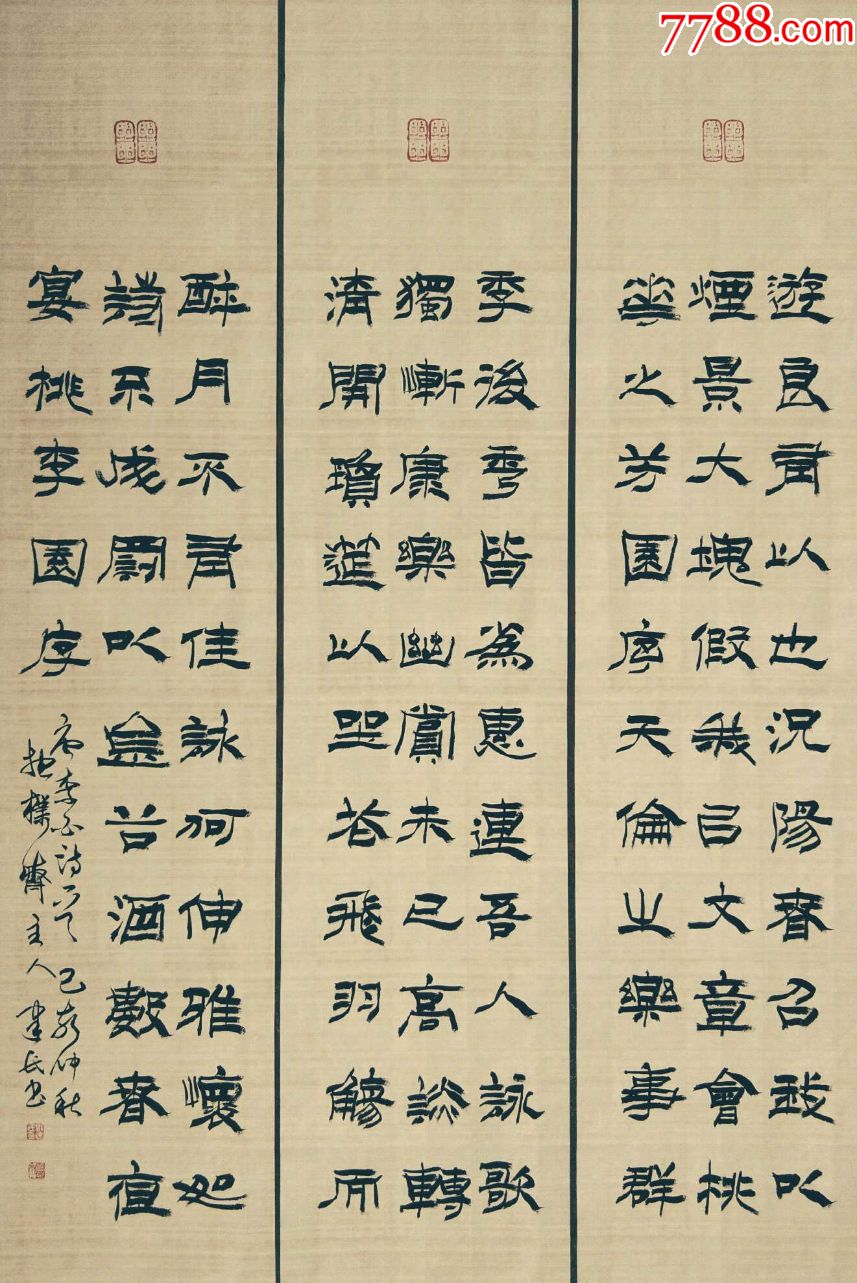 7788.com
遊良有以也況陽春召我以
煙景大塊假我以文章會桃
華之芳園序天倫之樂事群
季後秀皆為惠連吾人詠歌
獨慚康樂幽賞未已高談轉
清開瓊筵以坐花飛羽觴而
醉月不有佳詠何伸雅懷如
詩不成罰以金谷酒數春夜
宴桃李園序
唐李白詩一首 己亥仲秋
拙樸齋主人建民書